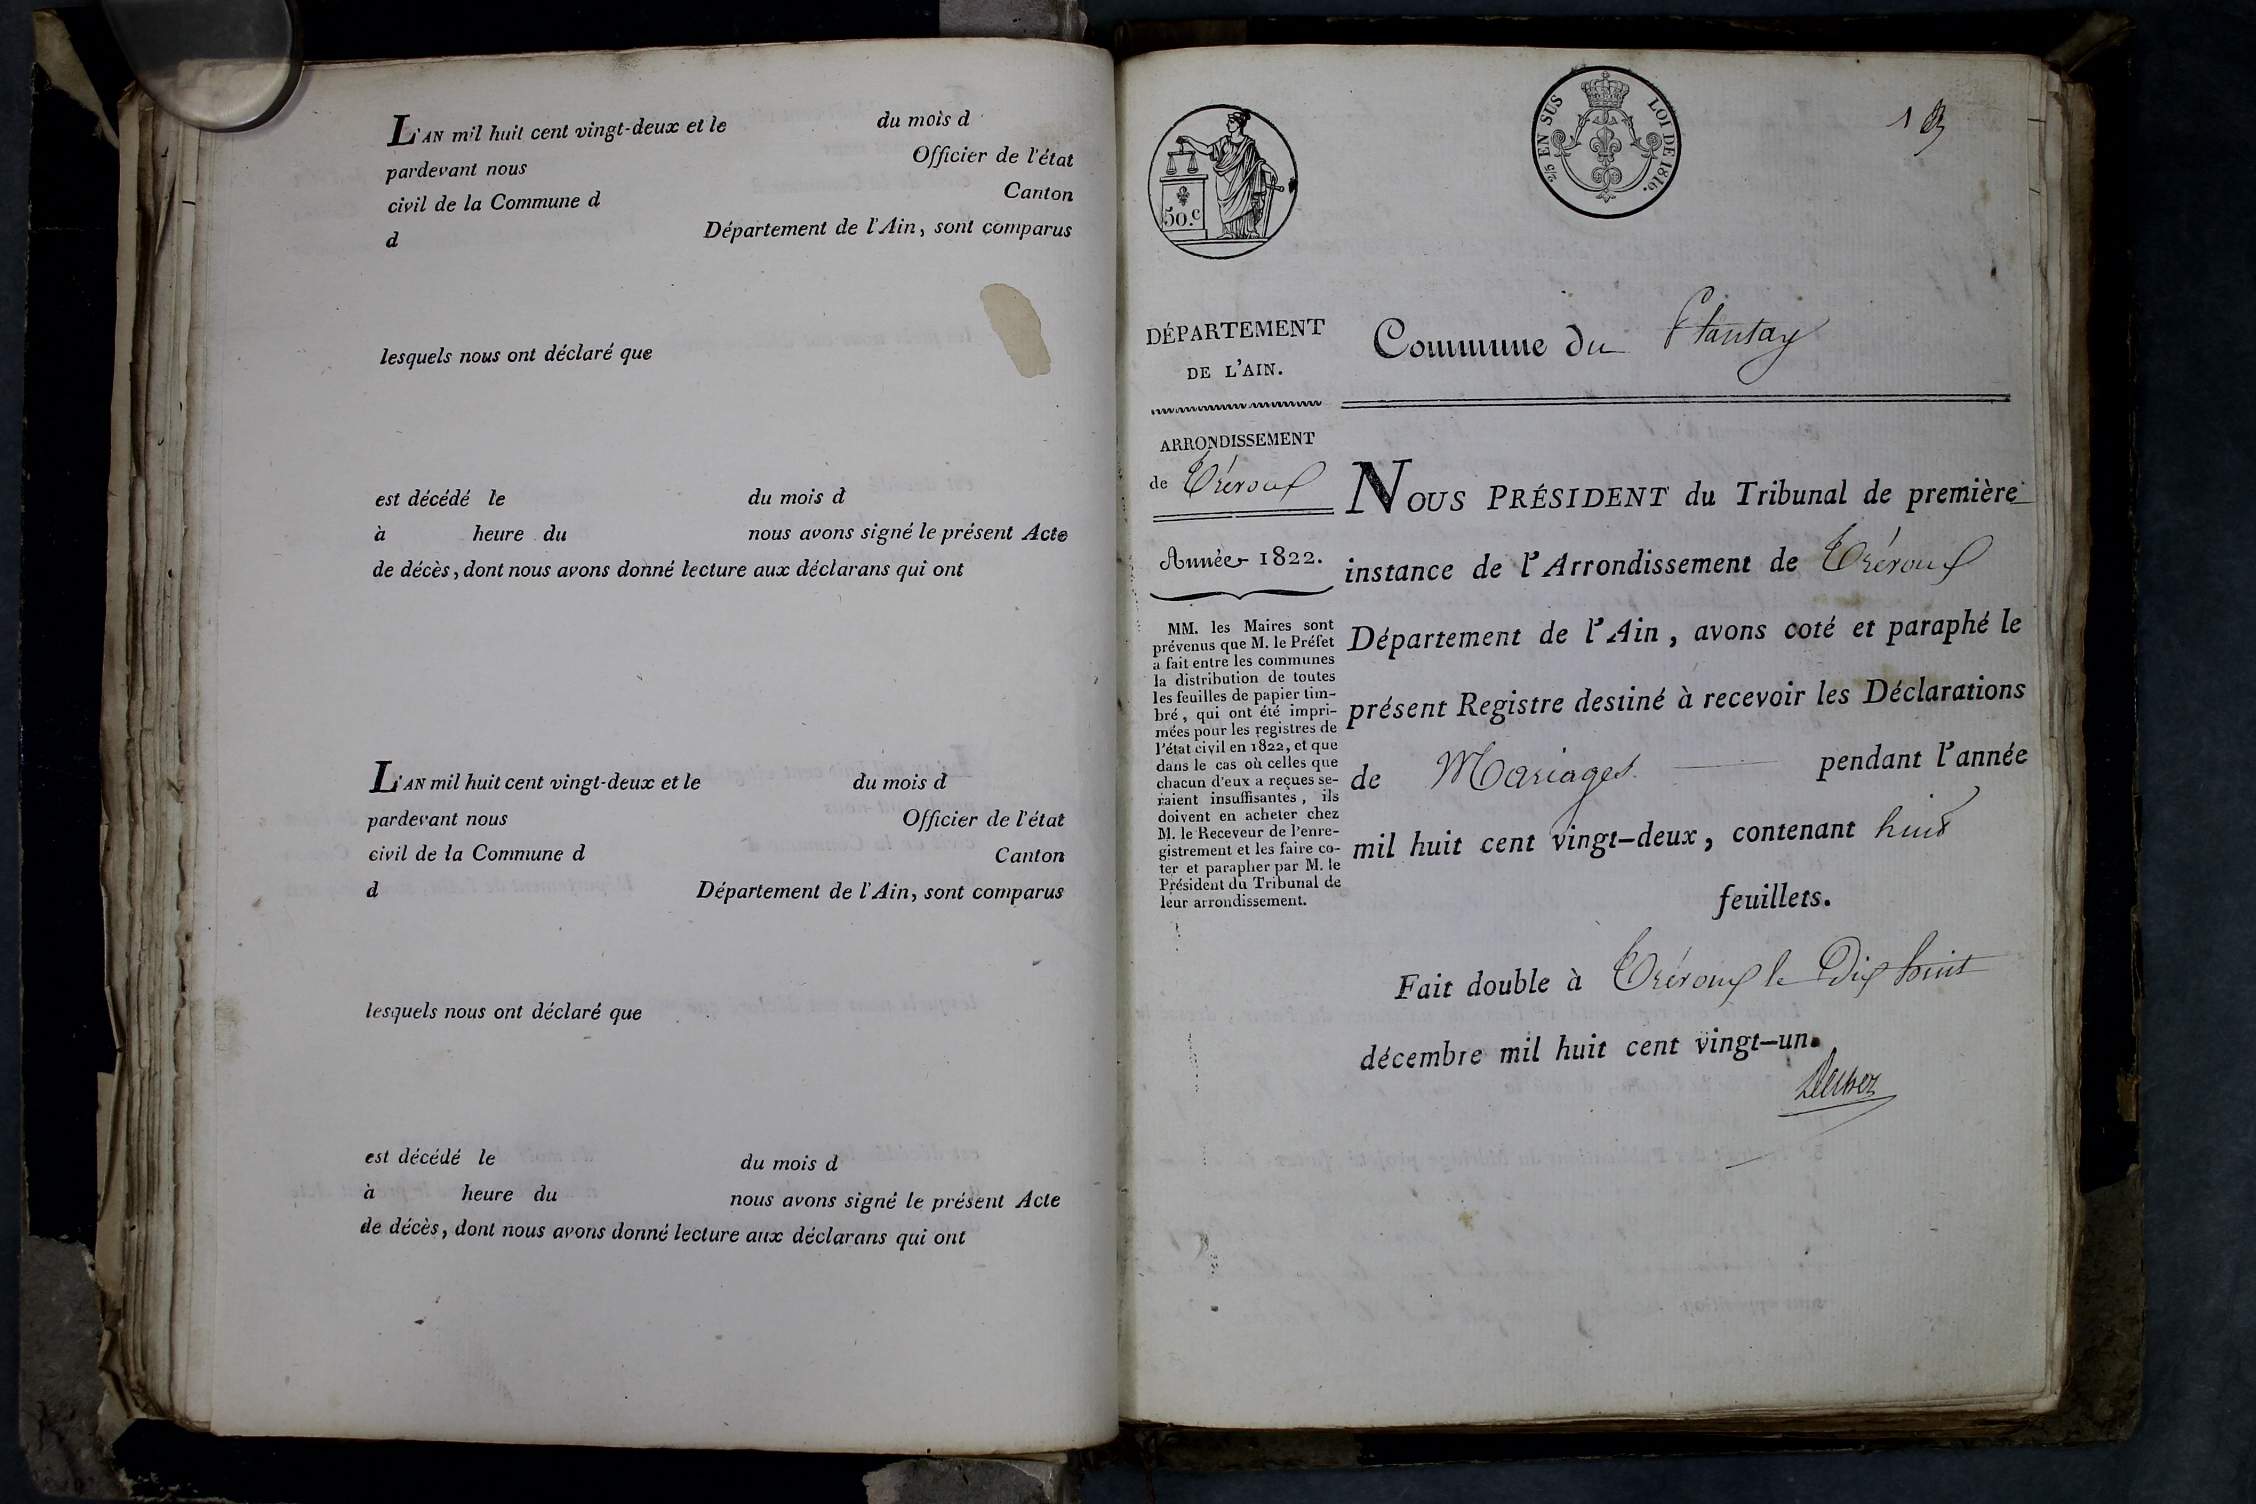 L'AN mil huit cent vingt-deux et le du mois d
pardevant nous Officier de l'état
civil de la Commune d Canton
d Département de l'Ain, sont comparus
lesquels nous ont déclaré que
est décédé le du mois d
à heure du nous avons signé le présent Acte
de décès, dont nous avons donné lecture aux déclarans qui ont
L'AN mil huit cent vingt-deux et le du mois d
pardevant nous Officier de l'état
civil de la Commune d Canton
d Département de l'Ain, sont comparus
lesquels nous ont déclaré que
est décédé le du mois d
à heure du nous avons signé le présent Acte
de décès, dont nous avons donné lecture aux déclarans qui ont
50.c
2/5 EN SUS LOI DE 1816.
1
DÉPARTEMENT
DE L'AIN.
Commune du Plantay
ARRONDISSEMENT
de Trévoux
Année 1822.
MM. les Maires sont
prévenus que M. le Préfet
a fait entre les communes
la distribution de toutes
les feuilles de papier tim-
bré, qui ont été impri-
mées pour les registres de
l'état civil en 1822, et que
dans le cas où celles que
chacun d'eux a reçues se-
raient insuffisantes, ils
doivent en acheter chez
M. le Receveur de l'enre-
gistrement et les faire co-
ter et parapher par M. le
Président du Tribunal de
leur arrondissement.
NOUS PRÉSIDENT du Tribunal de première
instance de l'Arrondissement de Trévoux
Département de l'Ain, avons coté et paraphé le
présent Registre destiné à recevoir les Déclarations
de Mariages. pendant l'année
mil huit cent vingt-deux, contenant huit
feuillets.
Fait double à Trévoux le Dix huit
décembre mil huit cent vingt-un.